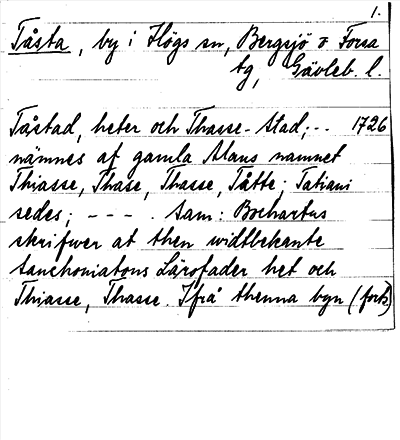 1.
Tåsta, by i Högs sn, Bergsjö o Forsa
tg, Gävleb. l.
Tåstad, heter och Thasse-stad; -- 1726
nämnes af gamla Mans namnet
Thiasse, Thase, Thasse, Tåtte; Tatiani
sedes; - - - . Sam: Bochartus
skrifwer at then widtbekante
Sanchoniatons Lärofader het och
Thiasse, Thasse. Ifrå thenna byn (forts)